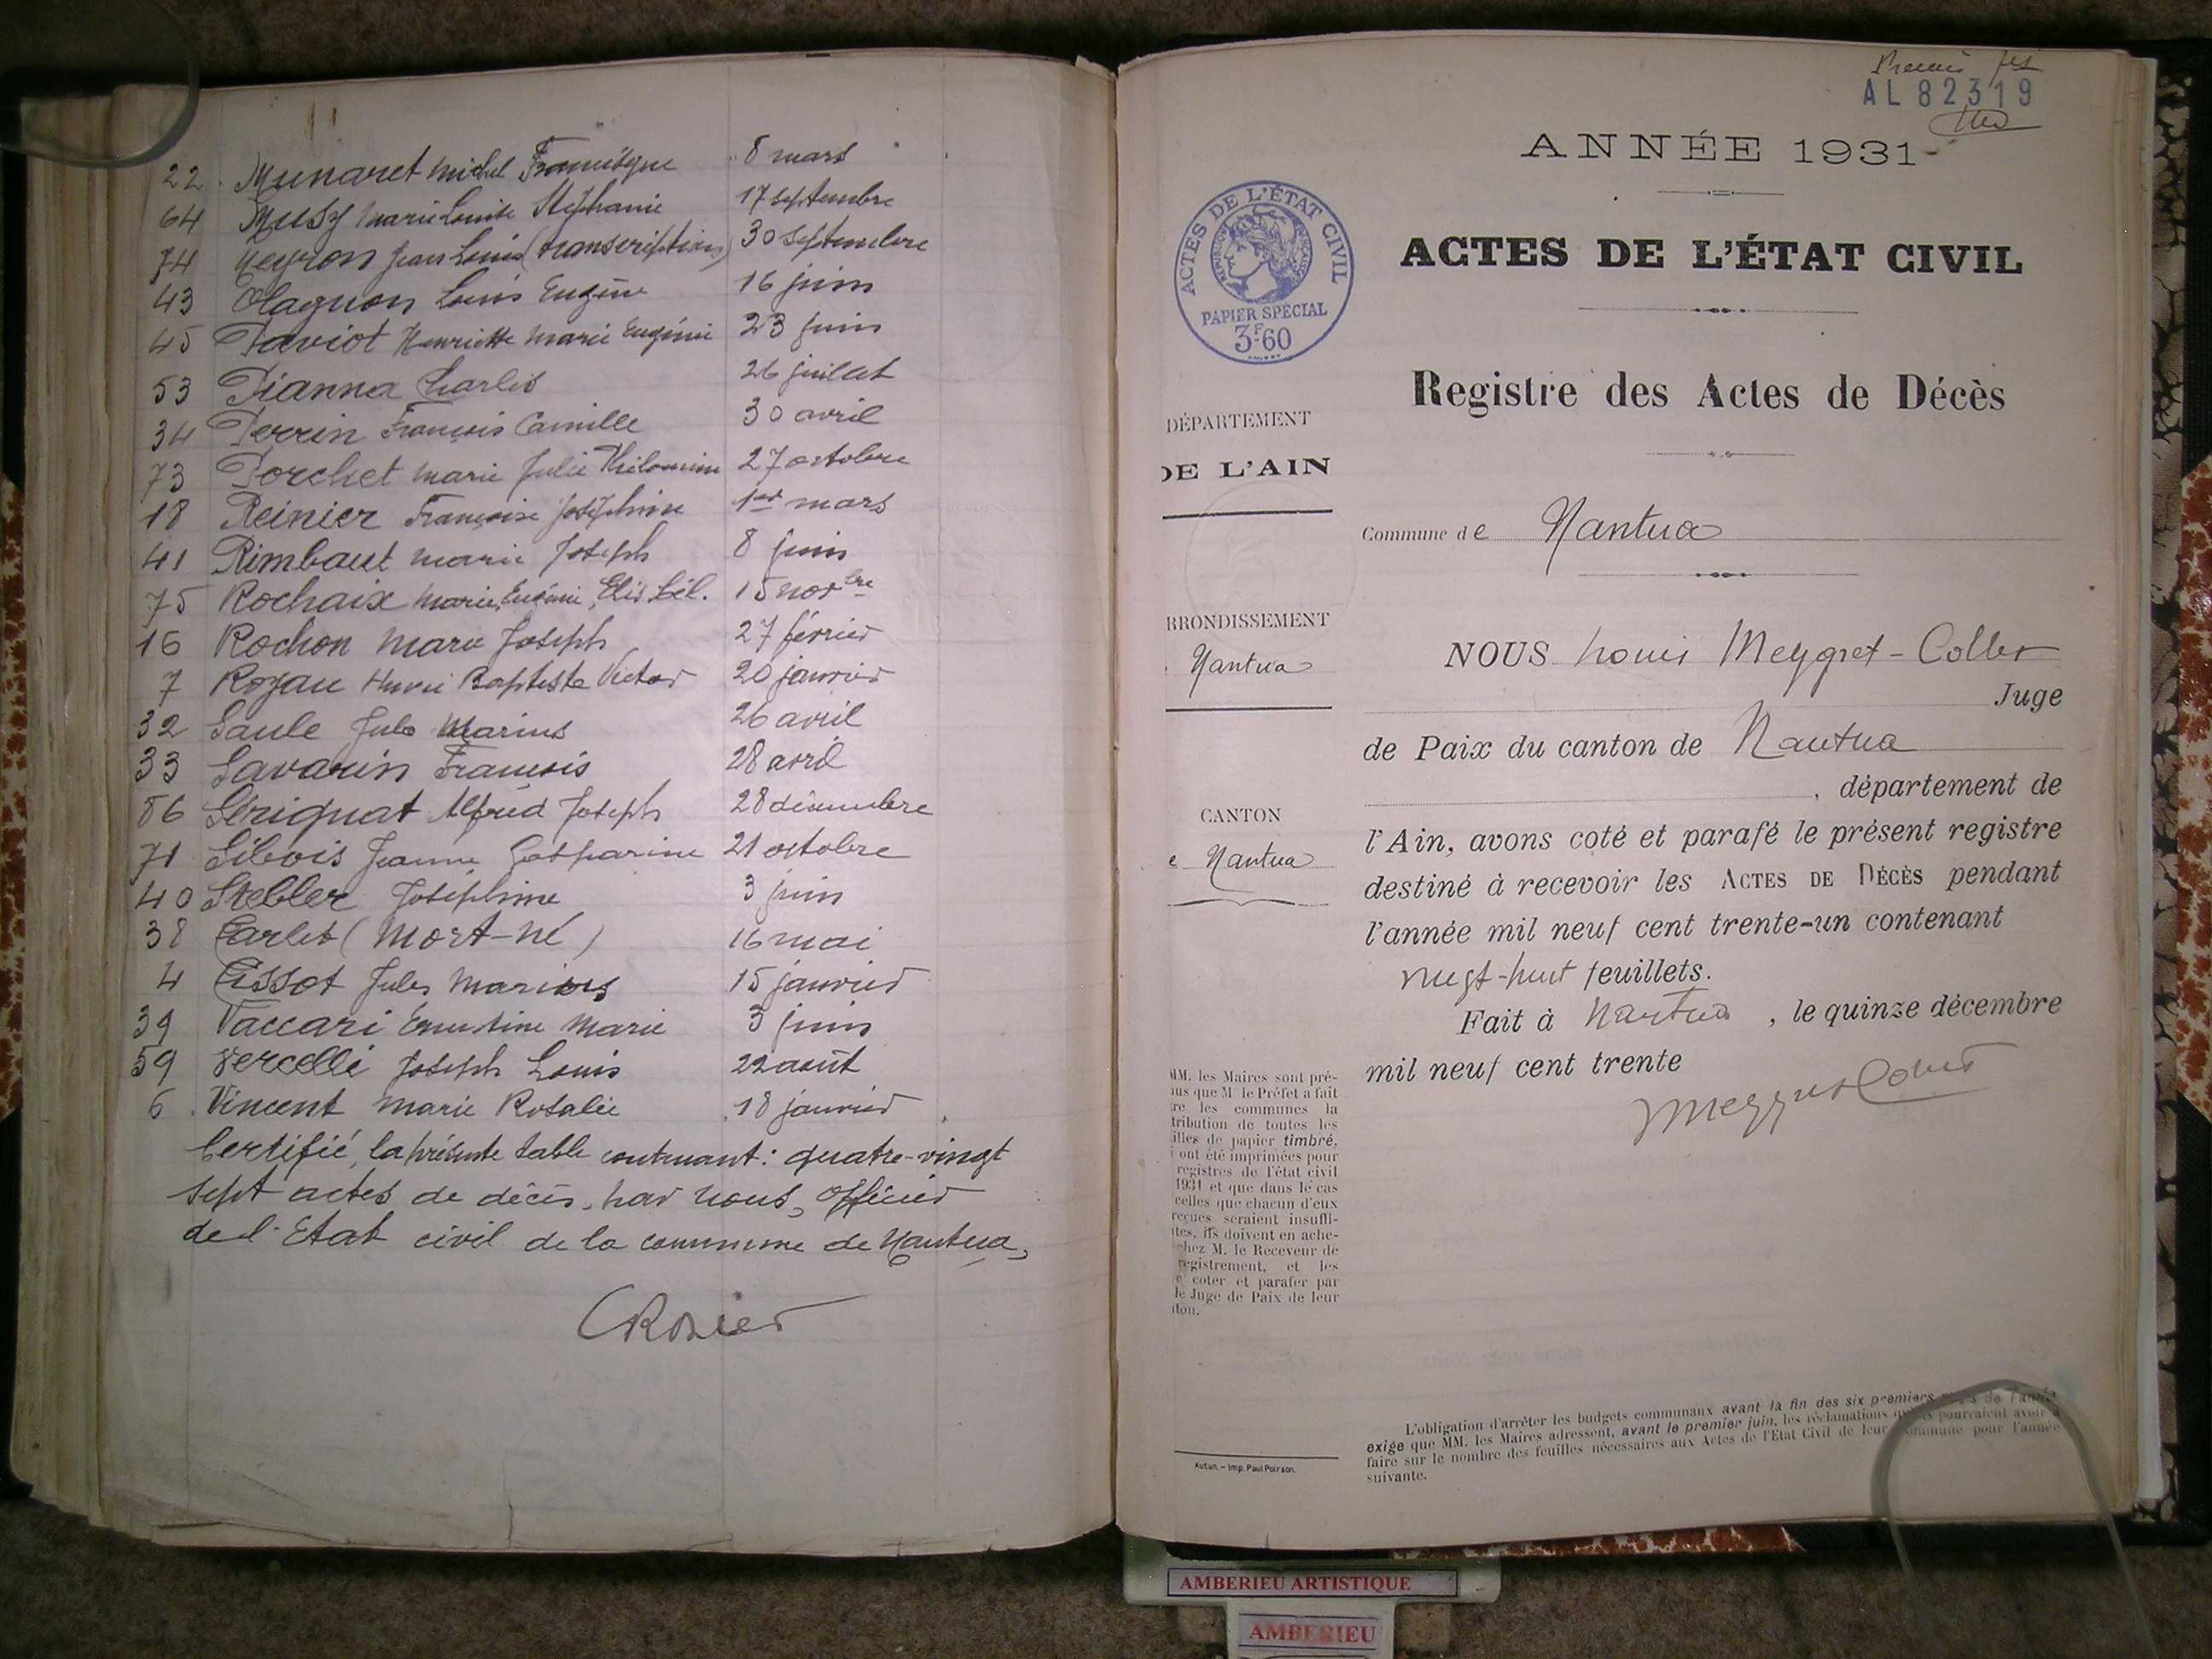 22 Munaret Michel Francisque 8 mars
64 Musy Marie Louise Stéphanie 17 septembre
74 Neyron Jean Louis (transcription) 30 septembre
43 Olagnon Louis Eugène 16 juin
45 Paviot Henriette Marie Eugénie 23 juin
53 Pianna Charles 26 juillet
34 Perrin François Camille 30 avril
73 Porchet Marie Julie Philomine 27 octobre
18 Reinier Françoise Joséphine 1er mars
41 Rimbaut Marie Joseph 8 juin
75 Rochaix Marie Eugénie Elis. Cél. 15 novbre
16 Rochon Marie Joseph 27 février
7 Royau Henri Baptiste Victor 20 janvier
32 Saule Jules Marius 26 avril
33 Savarin François 28 avril
86 Sérignat Alfred Joseph 28 décembre
71 Sibois Jeanne Gasparine 21 octobre
40 Stebler Joséphine 3 juin
38 Tarlet (Mort-né) 16 mai
4 Tissot Jules Marius 15 janvier
39 Vaccari Ernestine Marie 3 juin
59 Vercelli Joseph Louis 22 août
6 Vincent Marie Rosalie 18 janvier
Certifié, la présente table contenant : quatre-vingt
sept actes de décès, par nous, Officier
de l'Etat civil de la commune de Nantua,
CRosier
AL 82319
ANNÉE 1931
ACTES DE L'ÉTAT CIVIL
RÉPUBLIQUE FRANÇAISE
PAPIER SPÉCIAL
3F60
ACTES DE L'ÉTAT CIVIL
Registre des Actes de Décès
DÉPARTEMENT
DE L'AIN
Commune de Nantua
RRONDISSEMENT
Nantua
CANTON
e Nantua
NOUS Louis Meygret-Collet
Juge
de Paix du canton de Nantua
, département de
l'Ain, avons coté et parafé le présent registre
destiné à recevoir les ACTES DE DÉCÈS pendant
l'année mil neuf cent trente-un contenant
vingt-huit feuillets.
Fait à Nantua, le quinze décembre
mil neuf cent trente
MM. les Maires sont pré-
nus que M le Préfet a fait
re les communes la
tribution de toutes les
illes de papier timbré,
i ont été imprimées pour
registres de l'état civil
1931 et que dans le cas
celles que chacun d'eux
reçues seraient insuffi-
tes, ils doivent en ache-
chez M. le Receveur de
registrement, et les
e coter et parafer par
le Juge de Paix de leur
ton.
Autun. – Imp. Paul Poirson.
L'obligation d'arrêter les budgets communaux avant la fin des six premiers mois de l'année
exige que MM. les Maires adressent, avant le premier juin, les réclamations qu'ils pourraient avoir à
faire sur le nombre des feuilles nécessaires aux Actes de l'État Civil de leur commune pour l'année
suivante.
AMBERIEU ARTISTIQUE
AMBERIEU